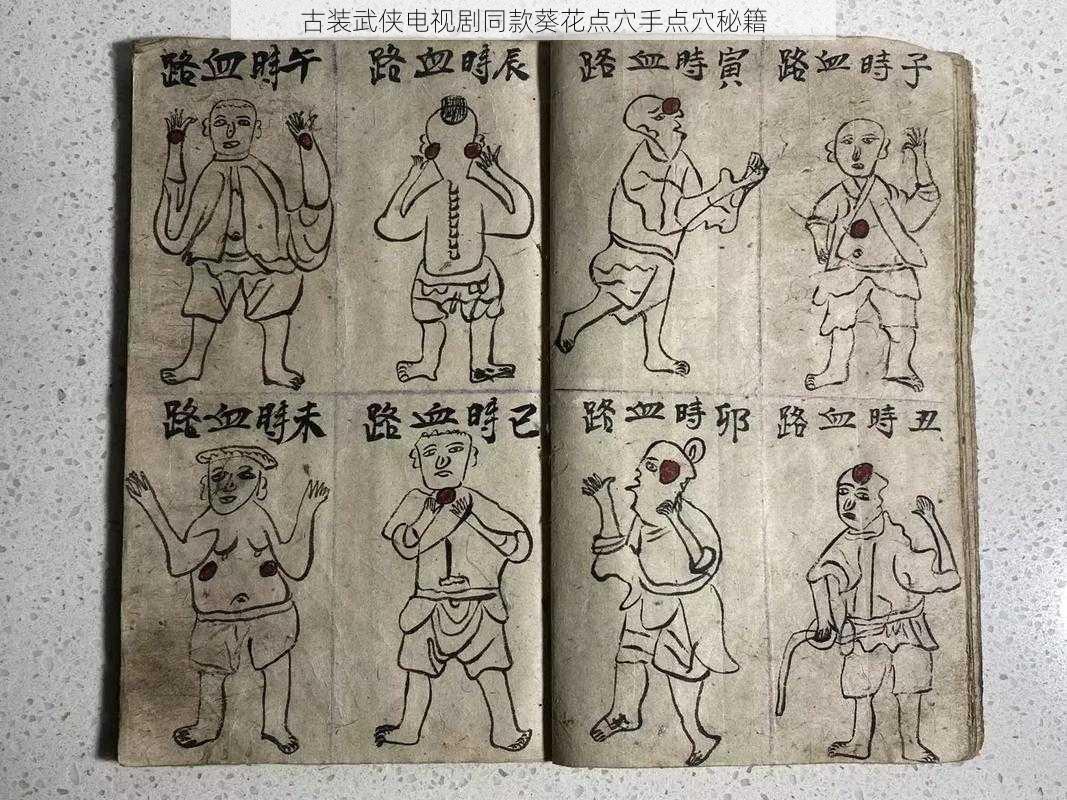 古装武侠电视剧同款葵花点穴手点穴秘籍
子時血路
丑時血路
寅時血路
卯時血路
辰時血路
巳時血路
午時血路
未時血路